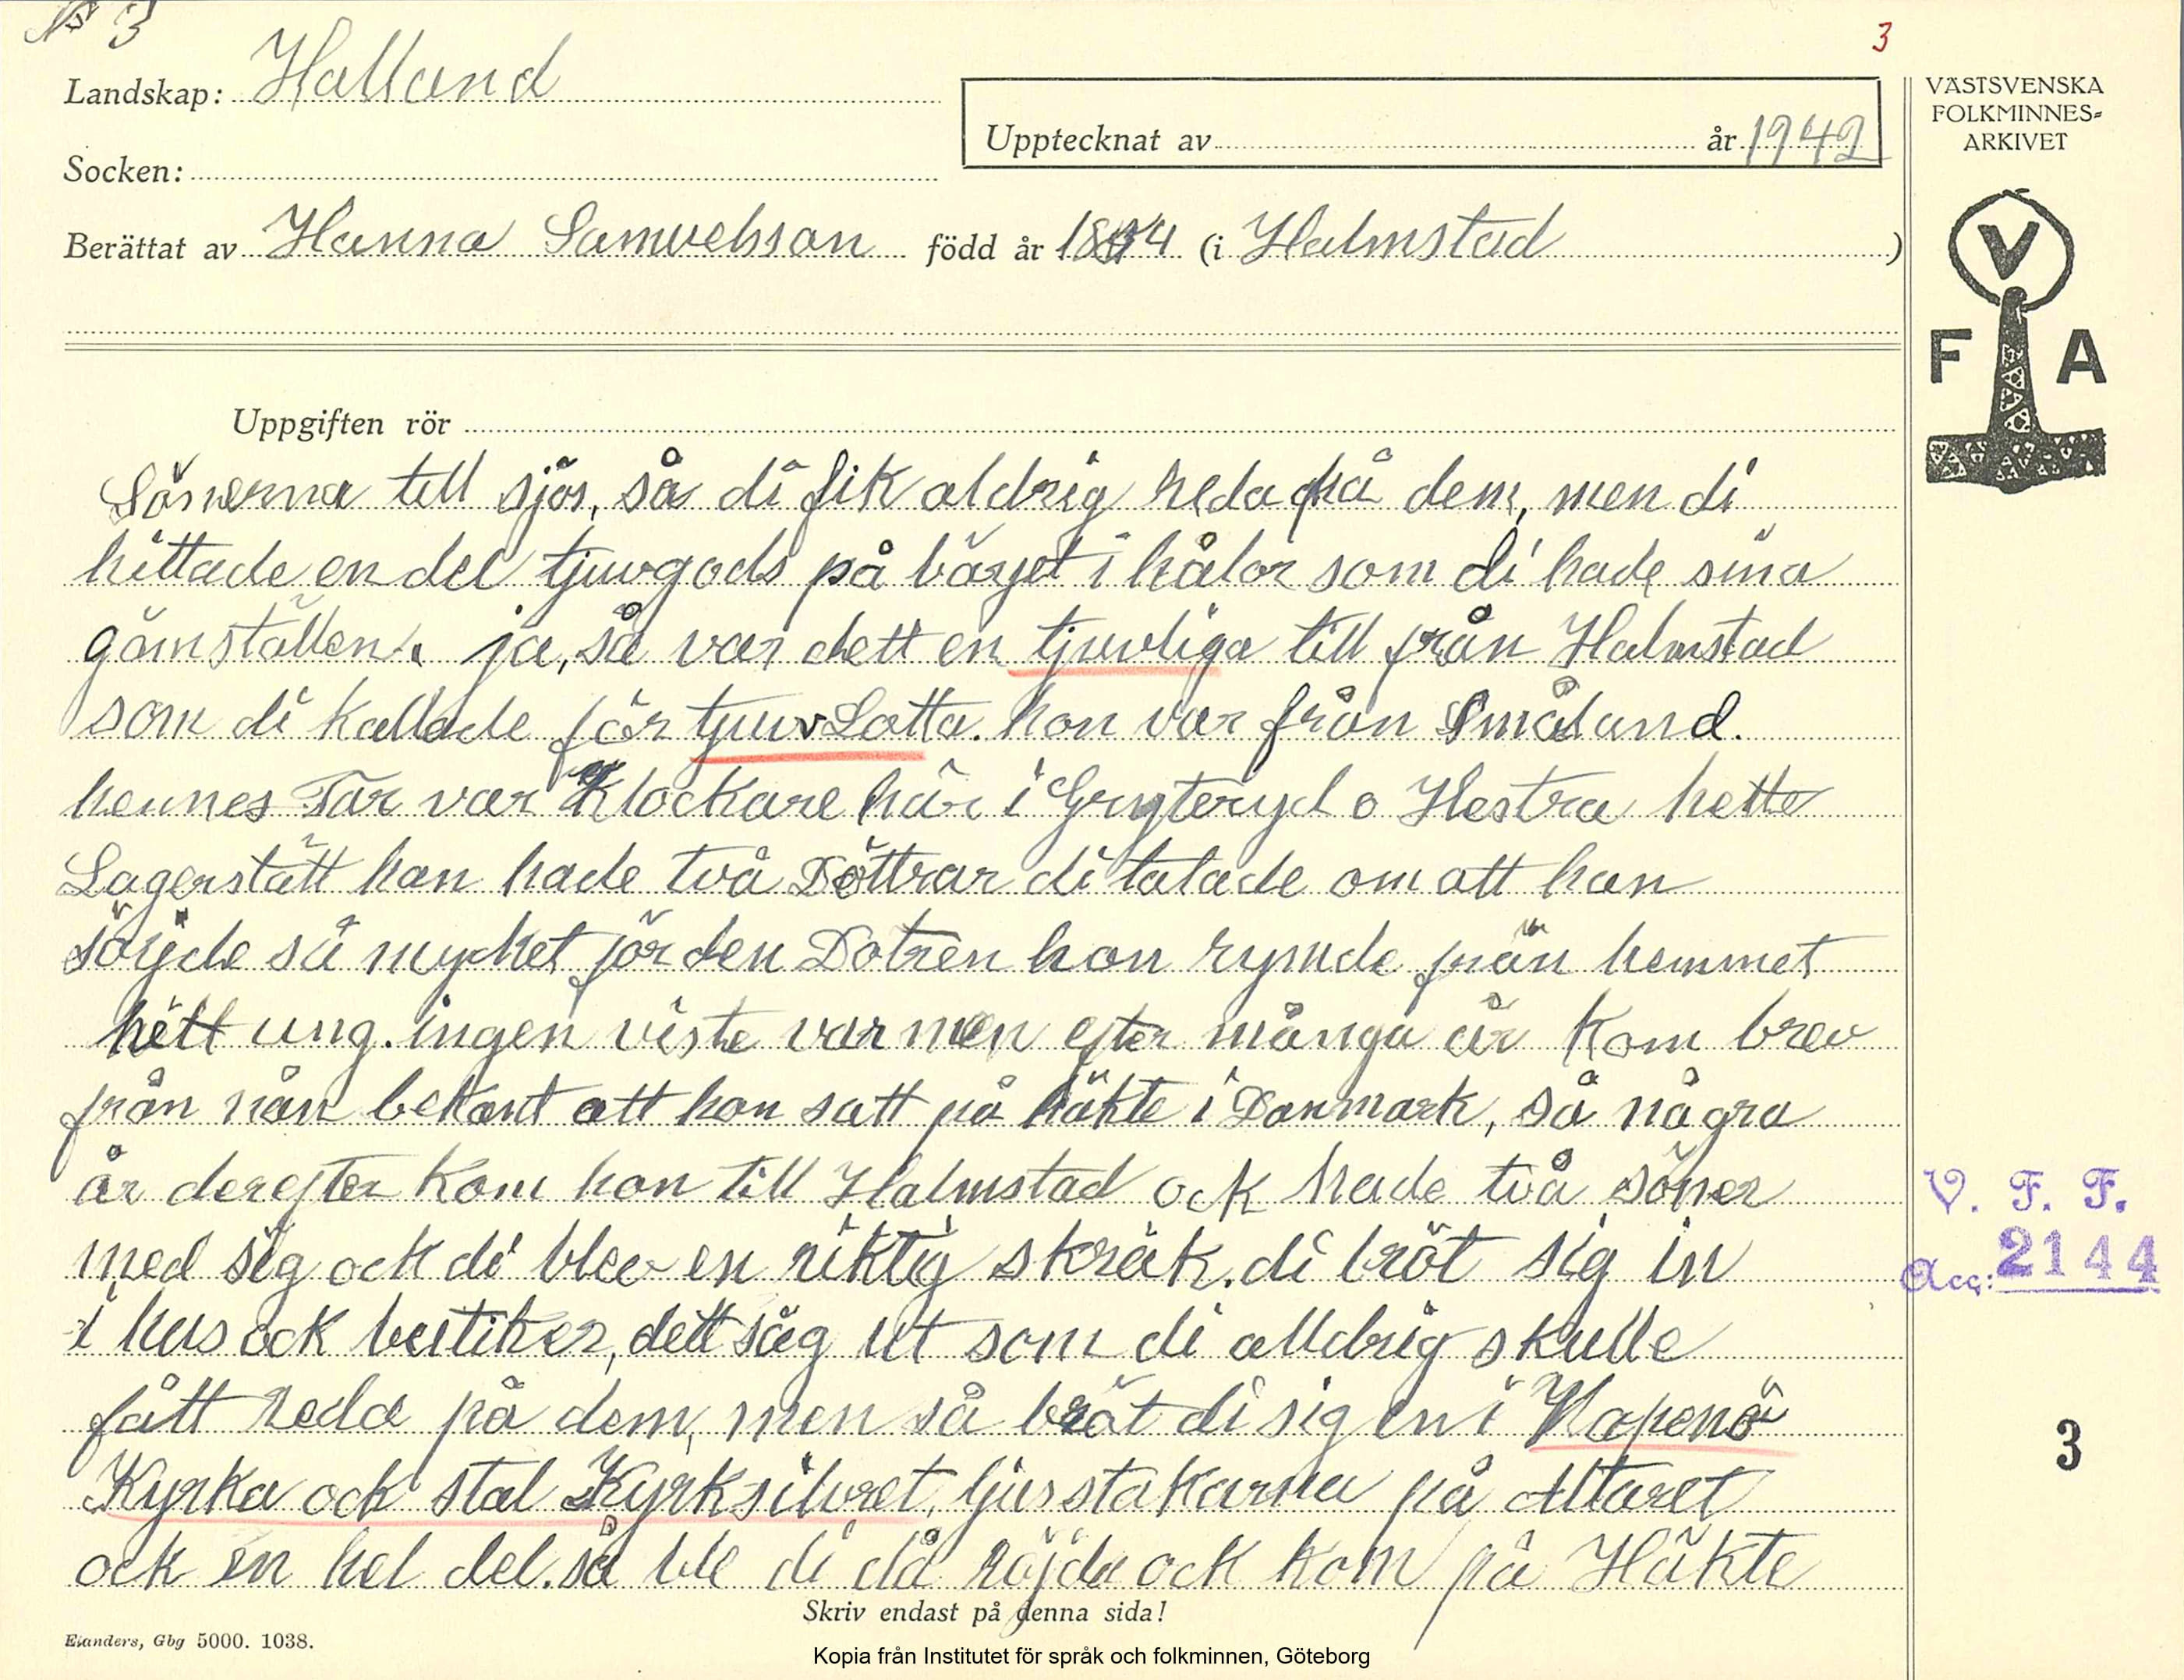 № 3
3
Landskap: Halland
Upptecknat av år 1942
Socken:
Berättat av Hanna Samuelsson född år (i Halmstad )
VÄSTSVENSKA
FOLKMINNES-
ARKIVET
V
F A
Uppgiften rör
Sönerna till sjös, så di fik aldrig reda på dem, men di
hittade en del tjuvgods på bärjet i hålor som di hade sina
gömställen. ja, så var dett en tjuvliga till från Halmstad
som di kallade för tjuv Lotta. hon var från Småland.
hennes Far var Klockare här i Gryteryd o Hestra hette
Lagerstätt han hade två Döttrar di talade om att han
sörjde så mycket för den Dotren hon rymde från hemmet
hett ung. ingen viste var men efter många år kom brev
från nån bekant att hon satt på häkte i Danmark, så några
år derefter kom hon till Halmstad ock hade två söner
med sig ock di blev en riktig skräk. di bröt sig in
i hus ock butiker, dett såg ut som di alldrig skulle
fått reda på dem, men så bröt di sig en i Kapenö
Kyrka ock stal Kyrksilvret, ljusstakarna på Altaret
ock en hel del. så ble di då röjda ock kom på Häkte
V. F. F.
Acc: 2144
3
Skriv endast på denna sida!
Elanders, Gbg 5000. 1038.
Kopia från Institutet för språk och folkminnen, Göteborg